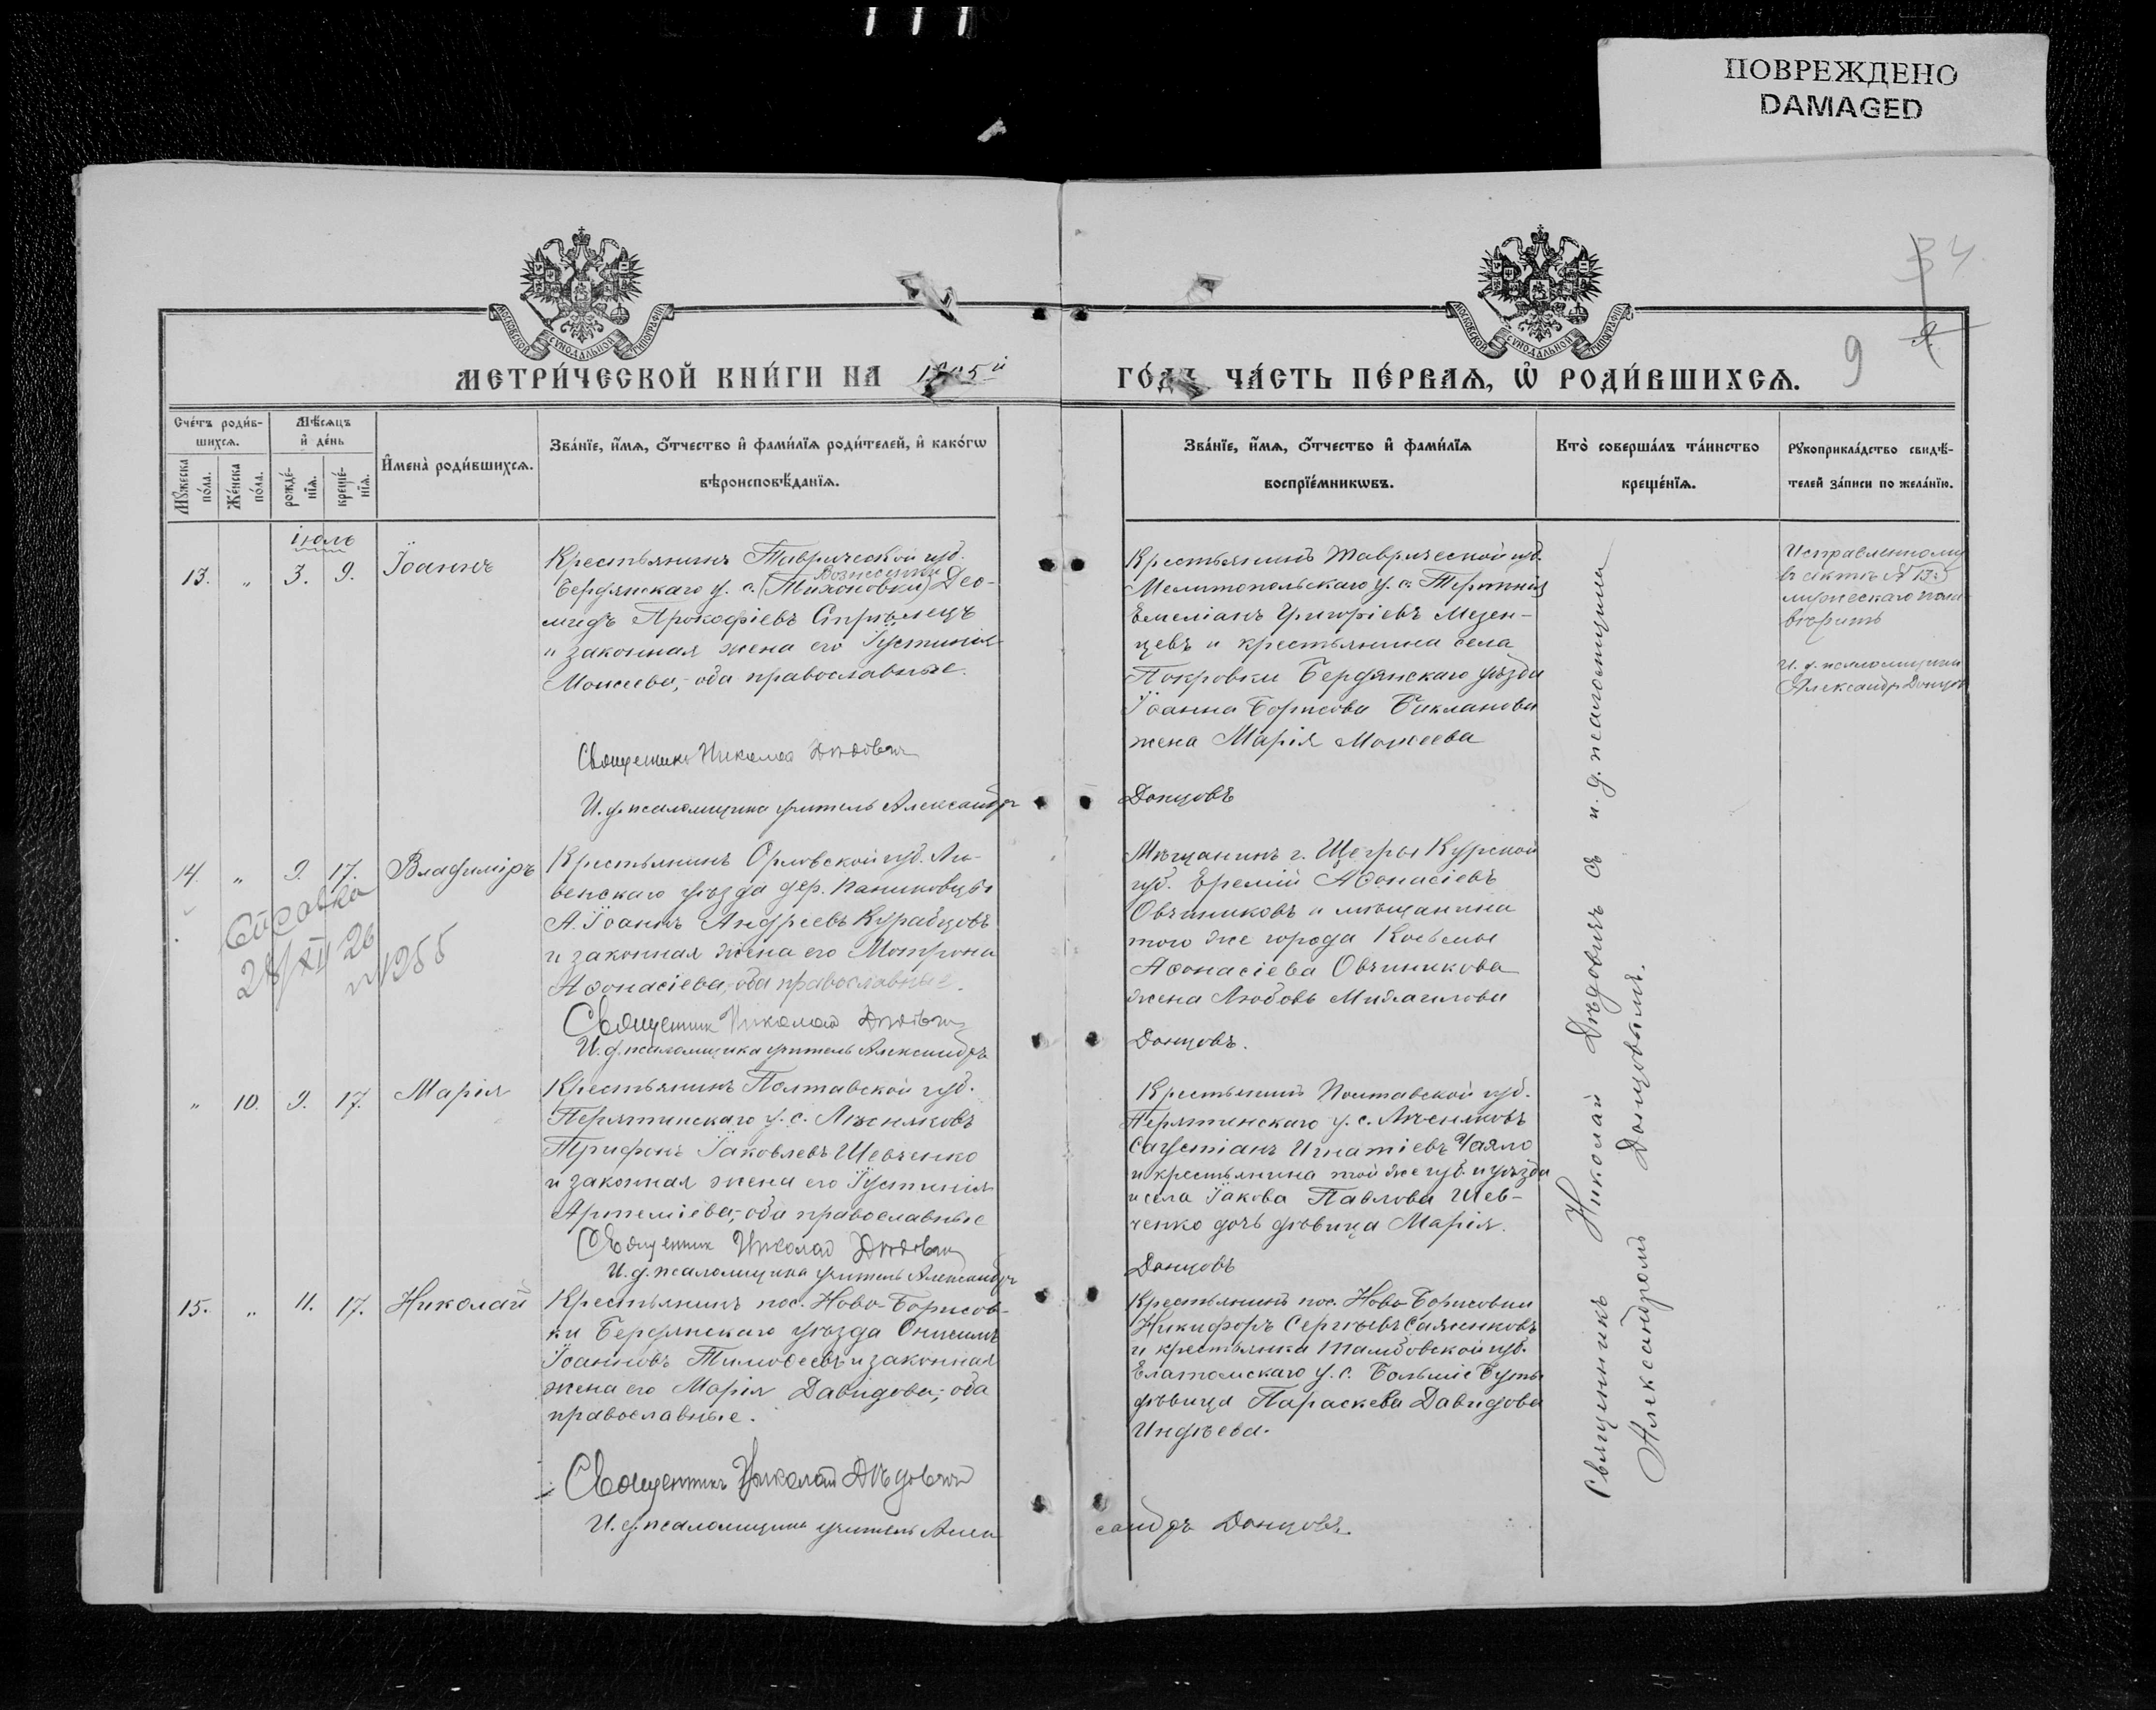 ПОВРЕЖДЕНО
DAMAGED
34
9
МОСКОВСКОЙ СѴНОДАЛЬНОЙ ТИПОГРАФІИ
МОСКОВСКОЙ СѴНОДАЛЬНОЙ ТИПОГРАФІИ
МЕТРИ́ЧЕСКОЙ КНИ́ГИ НА 1905й
ГО́ДЪ ЧА́СТЬ ПЕ́РВАѦ, Ѽ РОДИ́ВШИХСѦ.
Сче́тъ роди́в-
шихсѧ.
Мꙋжеска
по́ла.
Же́нска
по́ла.
Мѣ́сѧцъ
и҆ де́нь
рожде́-
нїѧ.
креще́-
нїѧ.
И҆мена̀ роди́вшихсѧ.
Зва́нїе, и҆́мѧ, ѻ҆́тчество и҆ фами́лїѧ роди́телей, и҆ како́гѡ
вѣроисповѣ́данїѧ.
Зва́нїе, и҆́мѧ, ѻ҆́тчество и҆ фами́лїѧ
воспрїе́мникѡвъ.
Кто̀ соверша́лъ та́инство
креще́нїѧ.
Рꙋкоприкла́дство свидѣ́-
телей за́писи по жела́нїю.
іюль
13. „ 3. 9. Іоаннъ
Крестьянинъ Таврической губ.
Вознесенки
Бердянскаго у. с. (Тихоновки) Део-
мидъ Прокофіевъ Стрѣлецъ
и законная жена его Іустинія
Моисеева, оба православные.
Священникъ Николай Дѣдовичъ
И. д. псаломщика учитель Александръ
Крестьянинъ Таврической губ.
Мелитопольскаго у. с. Терпѣнія
Емеліанъ Григоріевъ Мезен-
цевъ и крестьянина села
Покровки Бердянскаго уѣзда
Іоанна Борисова Бикланова
жена Марія Моисеева
Донцовъ
Исправленному
въ актѣ № 13
мужескаго пола
вѣрить
И. д. псаломщика
Александръ Донцовъ
14. „ 9. 17. Владиміръ
Крестьянинъ Орловской губ. Ли-
венскаго уѣзда дер. Паниковцы
А. Іоаннъ Андреевъ Курабцовъ
и законная жена его Матрона
Аѳонасіева, оба православные.
Священникъ Николай Дѣдовичъ
И. д. псаломщика учитель Александръ
Мѣщанинъ г. Щегры Курской
губ. Еремій Аѳонасіевъ
Овчиниковъ и мѣщанина
того же города Косьмы
Аѳонасіева Овчиникова
жена Любовь Михаилова
Донцовъ.
Справка
28/XII 26
№1255
„ 10. 9. 17. Марія
Крестьянинъ Полтавской губ.
Перятинскаго у. с. Лѣсняковъ
Трифонъ Іаковлевъ Шевченко
и законная жена его Іустинія
Артеміева, оба православные
Священникъ Николай Дѣдовичъ
И. д. псаломщика учитель Александръ
Крестьянинъ Полтавской губ.
Перятинскаго у. с. Лѣсняковъ
Игнатіевъ Чаяло
и крестьянина той же губ. и уѣзда
и села Іакова Павлова Шев-
ченко дочь дѣвица Марія.
Донцовъ
15. „ 11. 17. Николай
Крестьянинъ пос. Ново-Борисов-
ки Бердянскаго уѣзда Онисимъ
Іоанновъ Тимоѳеевъ и законная
жена его Марія Давидова, оба
православные.
Священникъ Николай Дѣдовичъ
И. д. псаломщика учитель Алек
Крестьянинъ пос. Ново-Борисовки
Никифоръ Сергѣевъ Саженковъ
и крестьянка Тамбовской губ.
Елатомскаго у. с. Большіе Буты
дѣвица Параскева Давидова
Индѣева.
сандръ Донцовъ.
Священникъ Николай Дѣдовичъ съ и. д. псаломщика
Александромъ Донцовымъ.